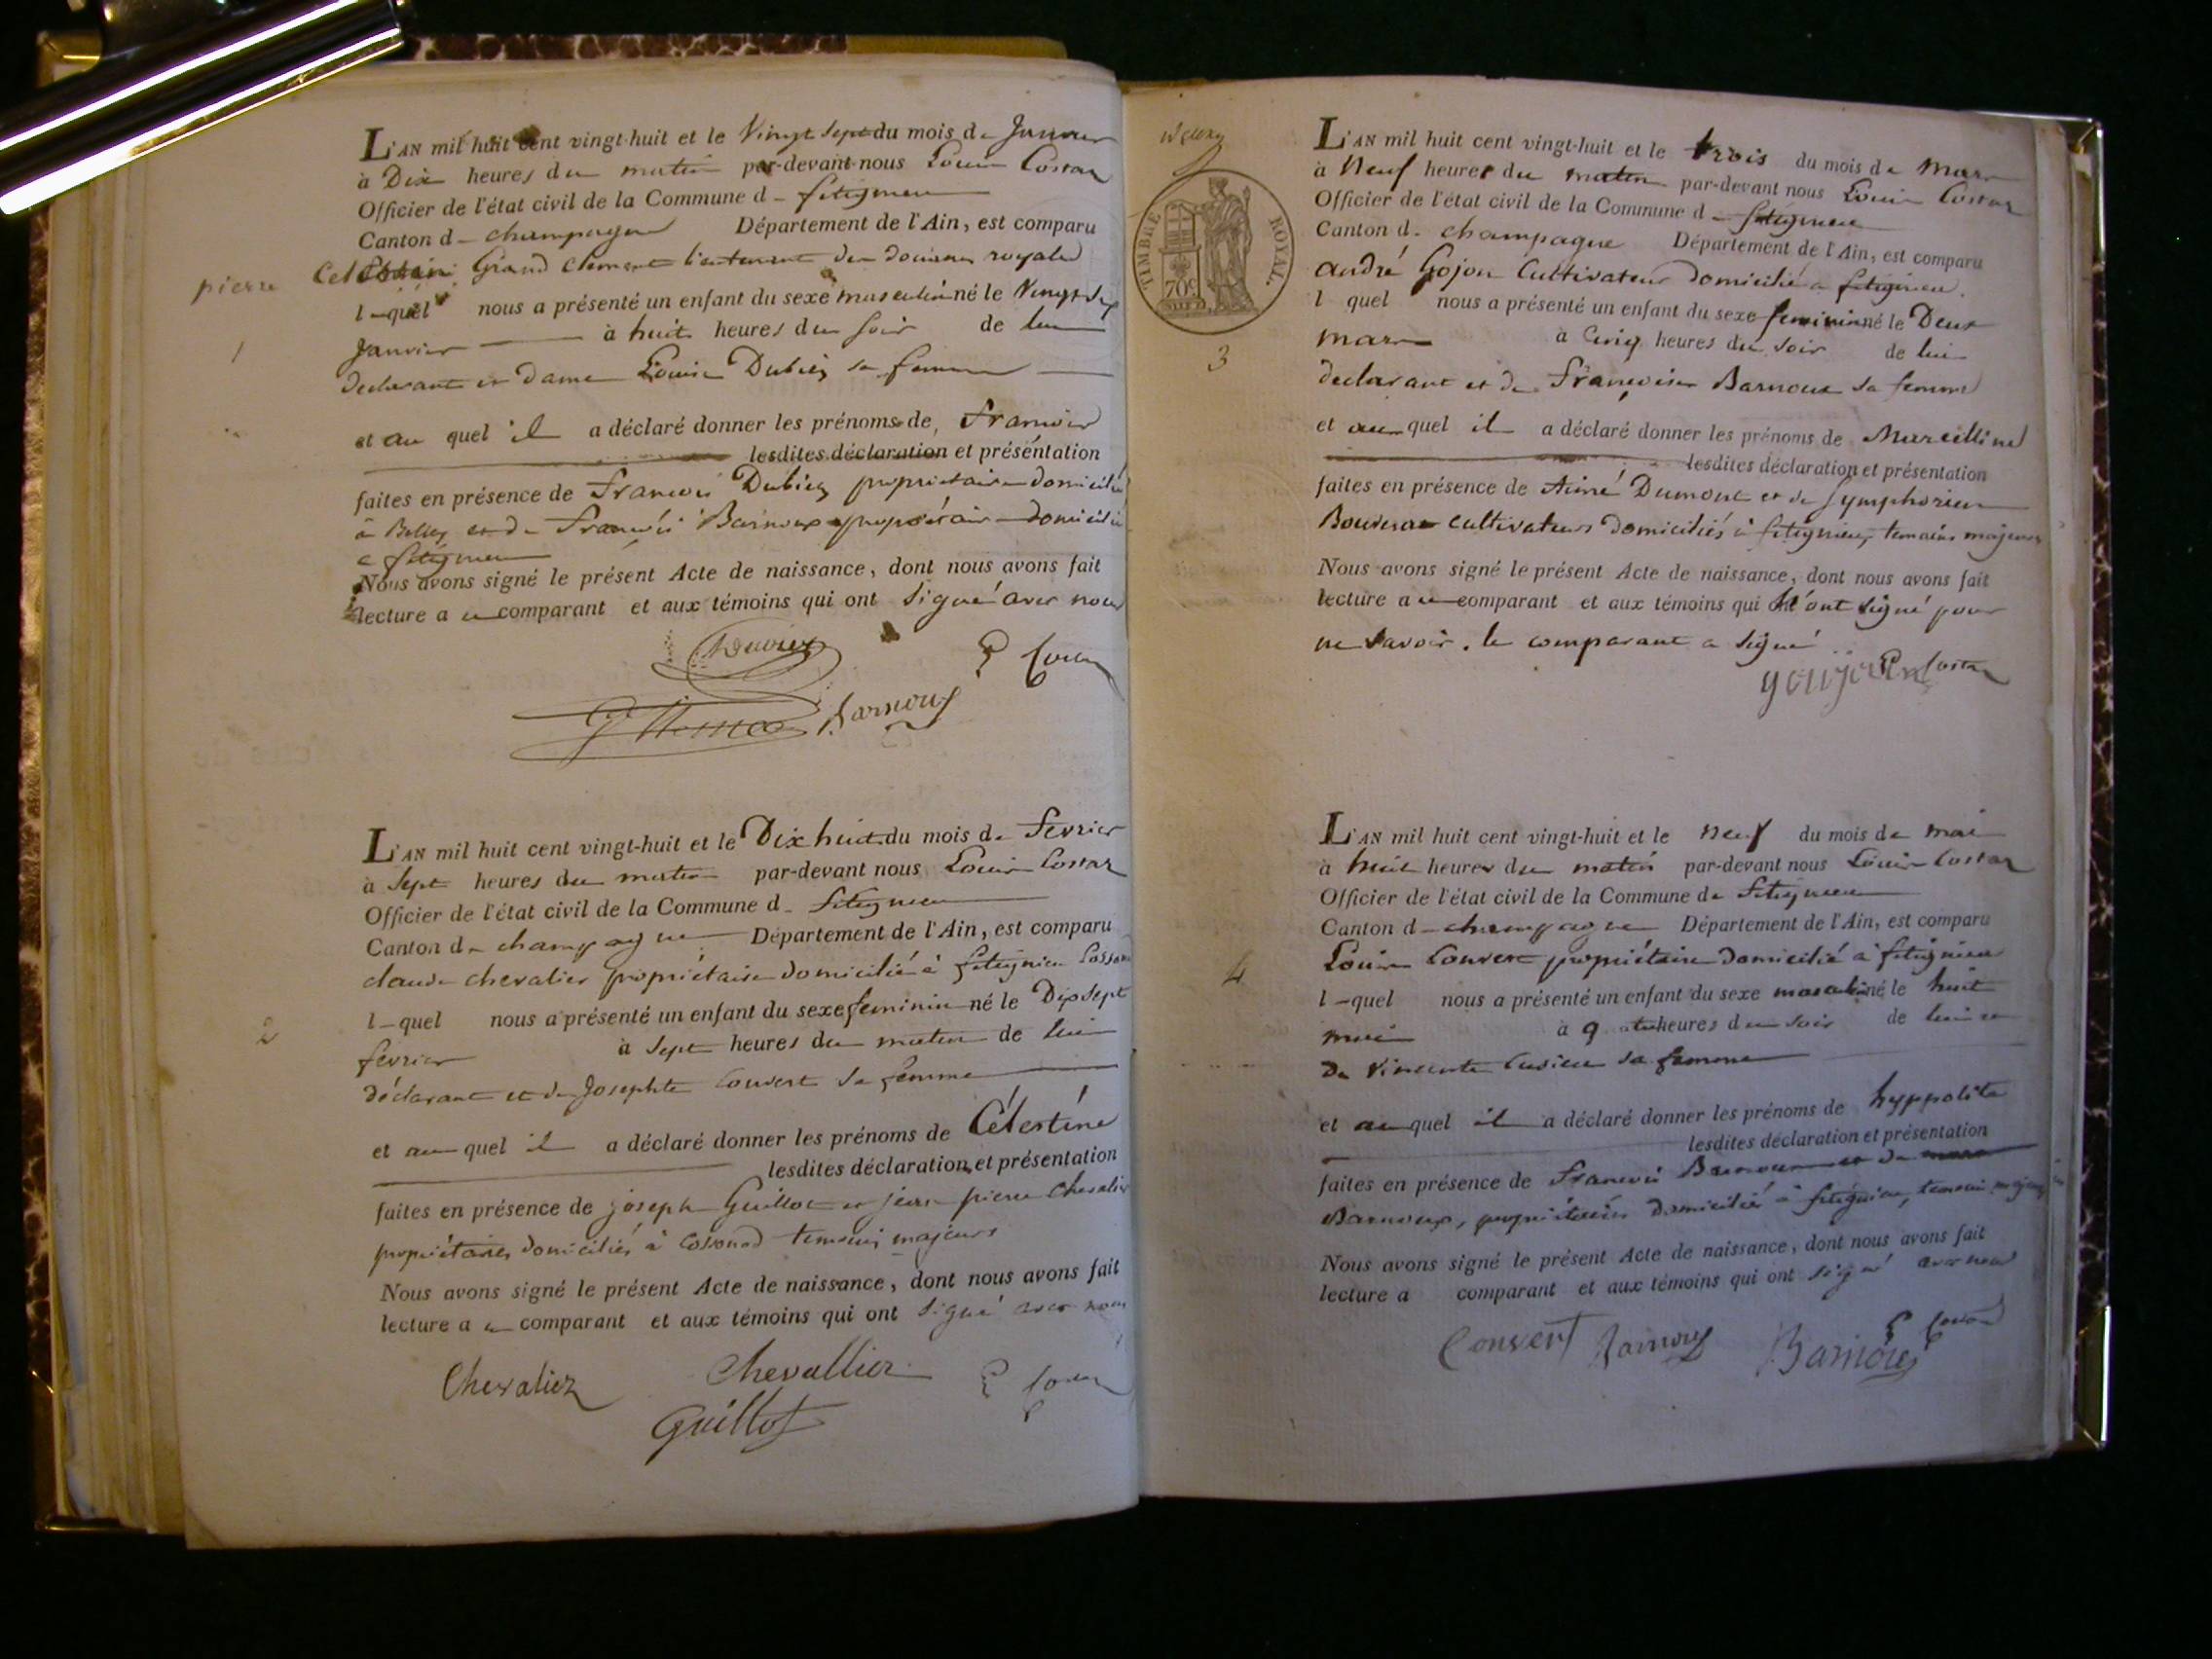 L'AN mil huit cent vingt-huit et le Vingt Sept du mois de Janvier
à Dix heures du matin par-devant nous Louis Costaz
Officier de l'état civil de la Commune de fitignieu
Canton de champagne Département de l'Ain, est comparu
pierre Celestin Grand Clement lieutenant des douanes royales
lequel nous a présenté un enfant du sexe masculin né le Vingt Six
1
Janvier à huit heures du soir de lui
declarant et dame Louise Dubiez sa femme
et au quel il a déclaré donner les prénoms de François
lesdites déclaration et présentation
faites en présence de François Dubiez propriétaire domicilié
à Belley et de François Barnoux propriétaire domicilié
a fitignieu
Nous avons signé le présent Acte de naissance, dont nous avons fait
lecture au comparant et aux témoins qui ont signé avec nous
Barnoux
L'AN mil huit cent vingt-huit et le Dix huit du mois de fevrier
à Sept heures du matin par-devant nous Louis Costaz
Officier de l'état civil de la Commune de fitignieu
Canton de champagne Département de l'Ain, est comparu
claude chevalier propriétaire domicilié à fitignieu
lequel nous a présenté un enfant du sexe feminin né le Dix Sept
2
fevrier à sept heures du matin de lui
déclarant et de Josephte Convert sa femme
et au quel il a déclaré donner les prénoms de Célestine
lesdites déclaration et présentation
faites en présence de joseph Guillot et jean pierre Chevalier
propriétaires domiciliés à Cossonod temoins majeurs
Nous avons signé le présent Acte de naissance, dont nous avons fait
lecture au comparant et aux témoins qui ont signé avec nous
Chevalier Chevallier
Guillot
TIMBRE ROYAL.
70c
L'AN mil huit cent vingt-huit et le trois du mois de Mars
à Neuf heures du matin par-devant nous Louis Costaz
Officier de l'état civil de la Commune de fitignieu
Canton de champagne Département de l'Ain, est comparu
andré Gojon Cultivateur domicilié a fitignieu
lequel nous a présenté un enfant du sexe feminin né le Deux
3
mars à Cinq heures du soir de lui
declarant et de Françoise Barnoux sa femme
et au quel il a déclaré donner les prénoms de Marcelline
lesdites déclaration et présentation
faites en présence de Aimé Dumont et de Symphorien
Bouvier cultivateurs domiciliés à fitignieu, temoins majeurs
Nous avons signé le présent Acte de naissance, dont nous avons fait
lecture au comparant et aux témoins qui n'ont signé pour
ne savoir. le comparant a signé
Costaz
L'AN mil huit cent vingt-huit et le neuf du mois de mai
à huit heures du matin par-devant nous Louis Costaz
Officier de l'état civil de la Commune de fitignieu
Canton de champagne Département de l'Ain, est comparu
Louis Convert propriétaire domicilié à fitignieu
4
lequel nous a présenté un enfant du sexe masculin né le huit
mai à heures du soir de lui et
De Vincente Cusieu sa femme
et au quel il a déclaré donner les prénoms de hyppolite
lesdites déclaration et présentation
faites en présence de François Barnoux et de
Barnoux, propriétaires domiciliés à fitignieu, temoins majeurs
Nous avons signé le présent Acte de naissance, dont nous avons fait
lecture a comparant et aux témoins qui ont signé avec nous
Convert Barnoux Barnoux